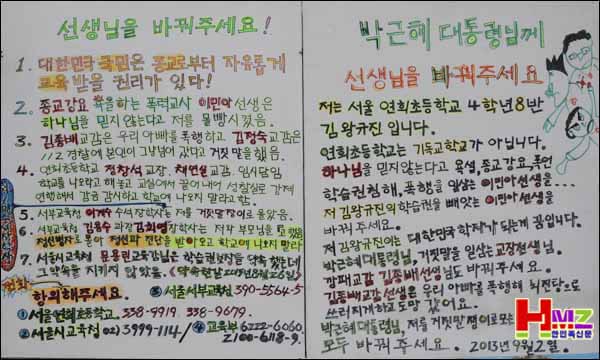 선생님을 바꿔주세요!
1. 대한민국 국민은 종교로부터 자유롭게
교육 받을 권리가 있다!
2. 종교강요 욕을하는 폭력교사 이민아 선생은
하나님을 믿지않는다고 저를 몰빵시켰음.
3. 김종배교감은 우리 아빠를 폭행하고 김정숙교감은
112 경찰에 본인이 그날넘어 갔다고 거짓 말을했음.
4. 연희초등학교 정창석교장, 채연실교감, 임시담임
학교를 나오라고 해놓고 교실에서 끌어 내어 성찰실로 가게
연행해서 감금 감시하고 학교에 나오지 말라고함.
5. 서부교육청 수석장학사는 저를 거짓말쟁이로 몰았음.
6. 서부교육청 김홍수과장 김희영장학사는 저와 부모님을
정신병자로 몰아 정신과 진단을 받아오고 학교에 나오지 말라
7. 서울시교육청 문용린교육감님은 학습권보장을 약속 했는데
그약속을 지키지 않았음.
전화
항의해주세요.
③ 서울서부교육청 390-5564-5
① 서울연희초등학교. 338-9919. 338-9679.
② 서울시교육청 02) 3999-114/
④ 교육부 6222-6060
2100-6118-9.
박근혜 대통령님께
선생님을 바꿔주세요
저는 서울 연희초등학교 4학년8반
김왕규진 입니다.
연희초등학교는 기독교학교가 아닙니다.
하나님을 믿지않는다고 욕설, 종교강요, 폭언
학습권침해, 폭행을 일삼는 이민아선생을...
저 김왕규진의 학습권을 빼앗는 이민아선생을
바꿔주세요.
저 김왕규진이는 대한민국 학자가되는게 꿈입니다.
박근혜대통령님, 거짓말을 일삼는 교장선생님,
깡패교감 김종배선생님도 바꿔 주세요.
김종배교감 선생은 우리 아빠를 폭행해 뇌진탕으로
쓰러지게하고도망 갔어요.
박근혜 대통령님, 저를 거짓말쟁이로모는
모두 바꿔 주세요. 2013년 9월2일.
HMZ
한민족신문